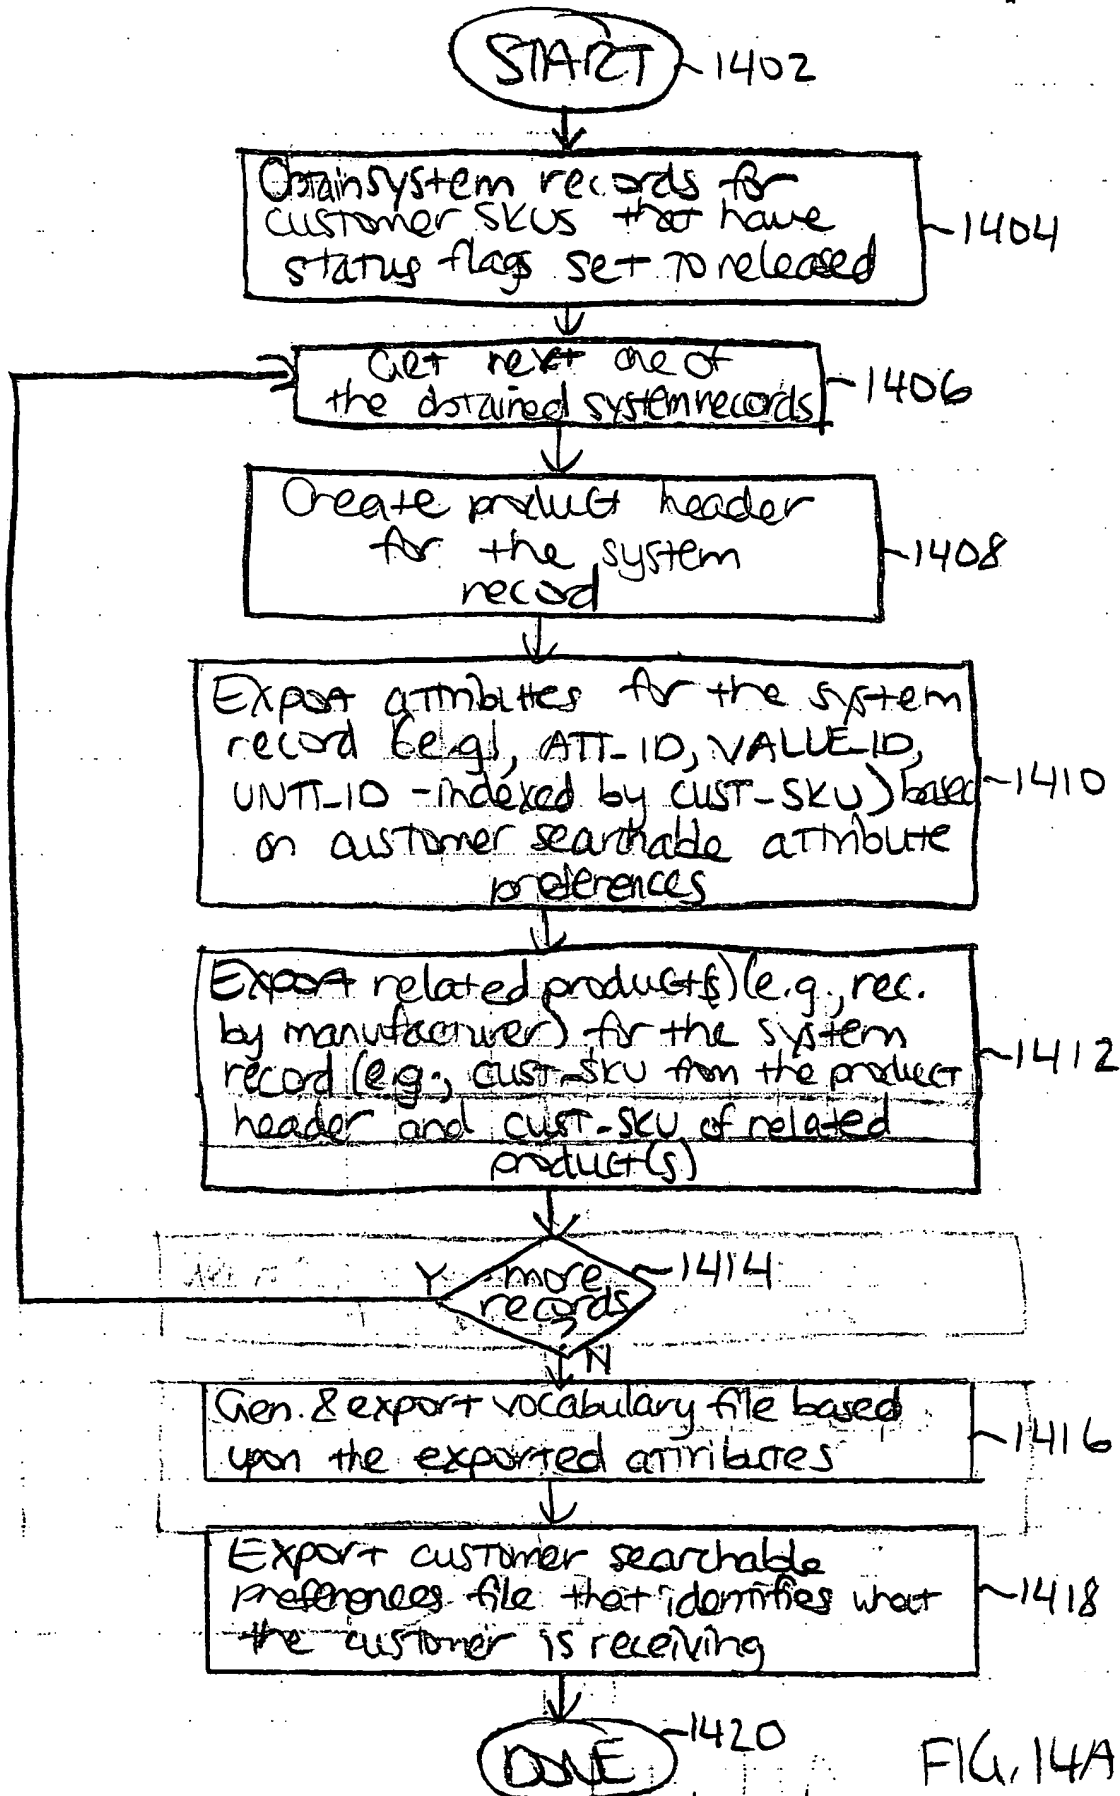 START 1402
Obtain system records for
customer SKUs that have
status flags set to released
1404
Get next one of
the obtained system records
1406
Create product header
for the system
record
1408
Export attributes for the system
record (e.g., ATT_ID, VALUE_ID,
UNIT_ID - indexed by CUST_SKU) based
on customer searchable attribute
preferences
1410
Export related product(s) (e.g., rec.
by manufacturer) for the system
record (e.g., CUST_SKU from the product
header and CUST_SKU of related
product(s)
1412
Y
more
records
?
1414
N
Gen. & export vocabulary file based
upon the exported attributes
1416
Export customer searchable
preferences file that identifies what
the customer is receiving
1418
DONE
1420
FIG. 14A